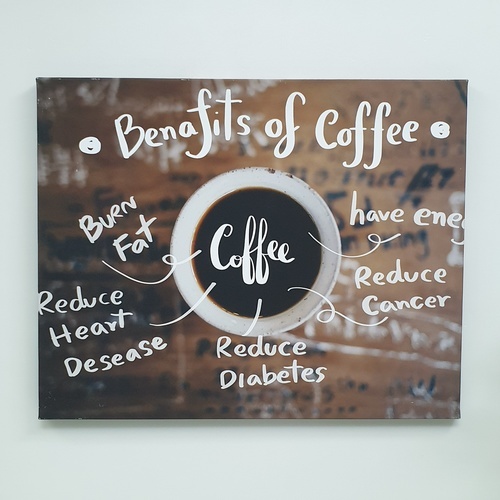 Benafits of Coffee
Burn
Fat
Coffee
have ene
Reduce
Heart
Desease
Reduce
Cancer
Reduce
Diabetes